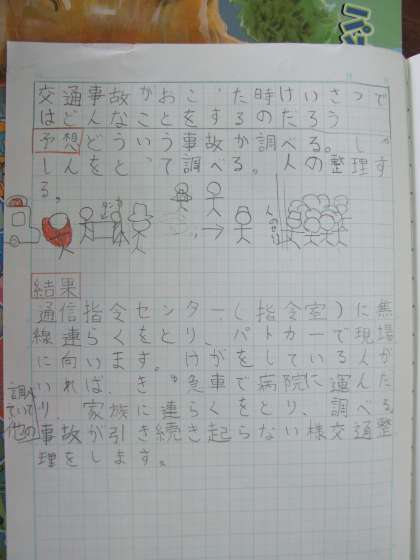 交通事故がおこった時けいさつで
はどんなことをするのだろう
予想 どういう事故か調べる。しゃ
しんをとって調べる。人の整理す
る。
結果
通信指令センター(指令室)に無
線連らくをとり、パトカーで現場
に向います。けがをしている人が
いれば、きゅう急車で病院に運んだ
り、家族に連らくをとり、調べる
調べ
ていて
他の事故が引き続き起らない様交通整
理をします。